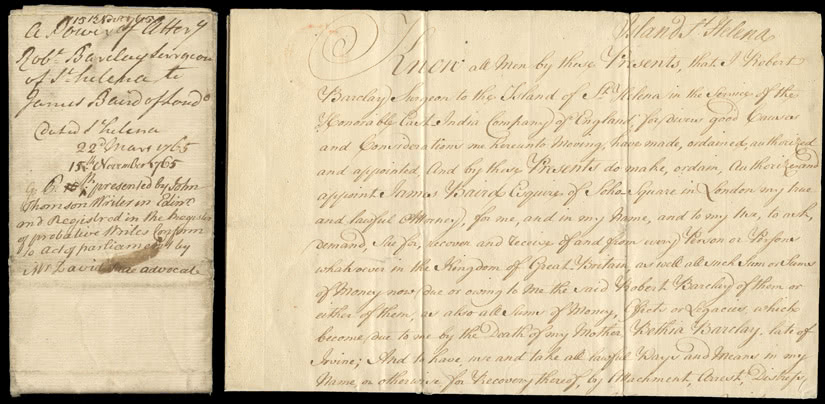 15th Nov. 1765
A Power of Attory
Robt. Barclay Surgeon
of St. helena to
James Baird of Londo
Dated St. helena
22d Mars 1765
15th November 1765
presented by John
Thomson Writer in Edinr
and Registred in the Register
of probative Writes Conform
to act of parliament by
Mr. David advocate
Island St. Helena
Know all Men by these Presents, that I Robert
Barclay Surgeon to the Island of St. Helena in the Service of the
Honorable East India Company of England; for divers good Causes
and Considerations me hereunto Moving, have made, ordained, authorized
and appointed, And by these Presents do make, ordain, Authorize and
appoint James Baird Esquire of Soho Square in London my true
and lawful Attorney, for me, and in my Name, and to my Use, to ask,
demand, Sue for, recover and receive of and from every Person or Persons
whatsoever in the Kingdom of Great Britain, as well all such Sum or Sums
of Money now due or owing to Me the said Robert Barclay of them or
either of them, as also all Sums of Money, Effects or Legacies, which
become due to me by the Death of my Mother Bethia Barclay, late of
Irvine; And to have use and take all lawful Ways and Means in my
Name, or otherwise for Recovery thereof, by Attachment, Arrest, Distress,